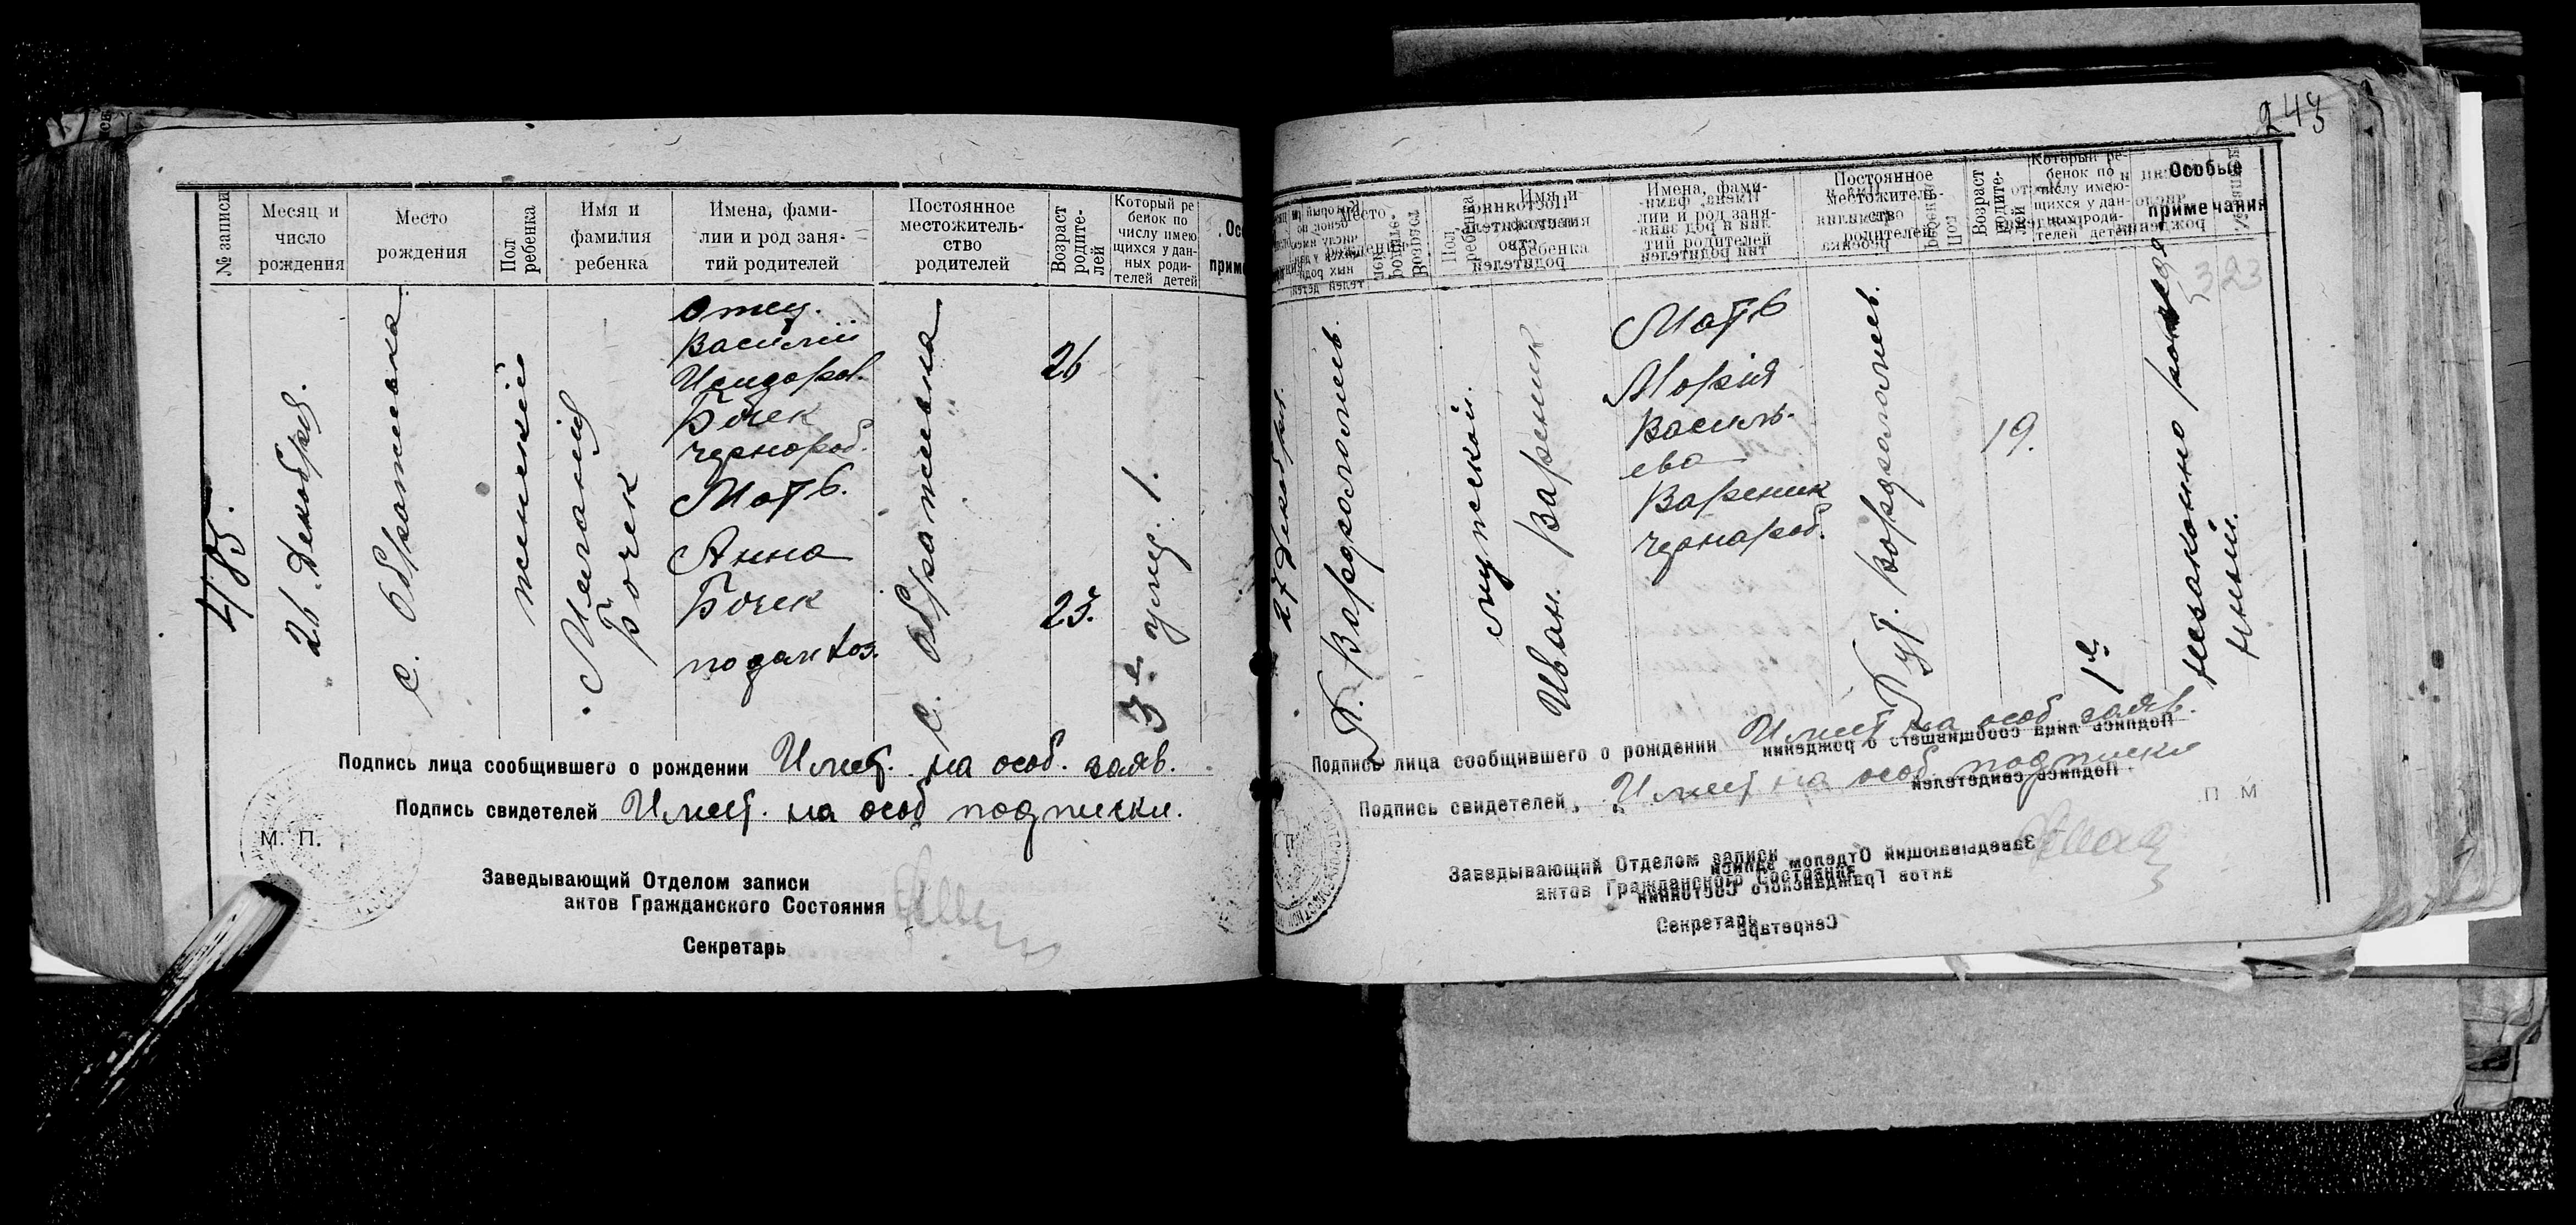 № записи
Месяц и
число
рождения
Место
рождения
Пол
ребенка
Имя и
фамилия
ребенка
Имена, фами-
лии и род заня-
тий родителей
Постоянное
местожитель-
ство
родителей
Возраст
родите-
лей
Который ре
бенок по
числу имею
щихся у дан-
ных роди-
телей детей
485.
26 Декабря.
с. Обратиевка
женский
Мелания
Бочек
Отец.
Василий
Исидоров.
Бочек
чернораб.
Мать.
Анна
Бочек
с. Обратиевка
26
23.
3й. 1.
Подпись лица сообщившего о рождении Имеет. на особ. заяв.
Подпись свидетелей Имеет. на особ подписки.
М. П.
Заведывающий Отделом записи
актов Гражданского Состояния
Секретарь
243
Место
Пол
ребенка
Имя и
ребенка
Имена, фами-
лии и род заня-
тий родителей
Постоянное
местожитель-
ство
родителей
Возраст
родите-
лей
Который ре-
бенок по
числу имею-
щихся у дан-
ных роди-
телей детей
Особые
примечания
323
27 Декабря.
мужской.
Иван. Вареник
Мать
Мария
Василь-
ева
Вареник
чернораб.
19.
1й
незаконно рожде
нный.
Подпись лица сообщившего о рождении Имеет на особ. заяв.
Подпись свидетелей Имеет на особ. подписки
Заведывающий Отделом записи
актов Гражданского Состояния
Секретарь